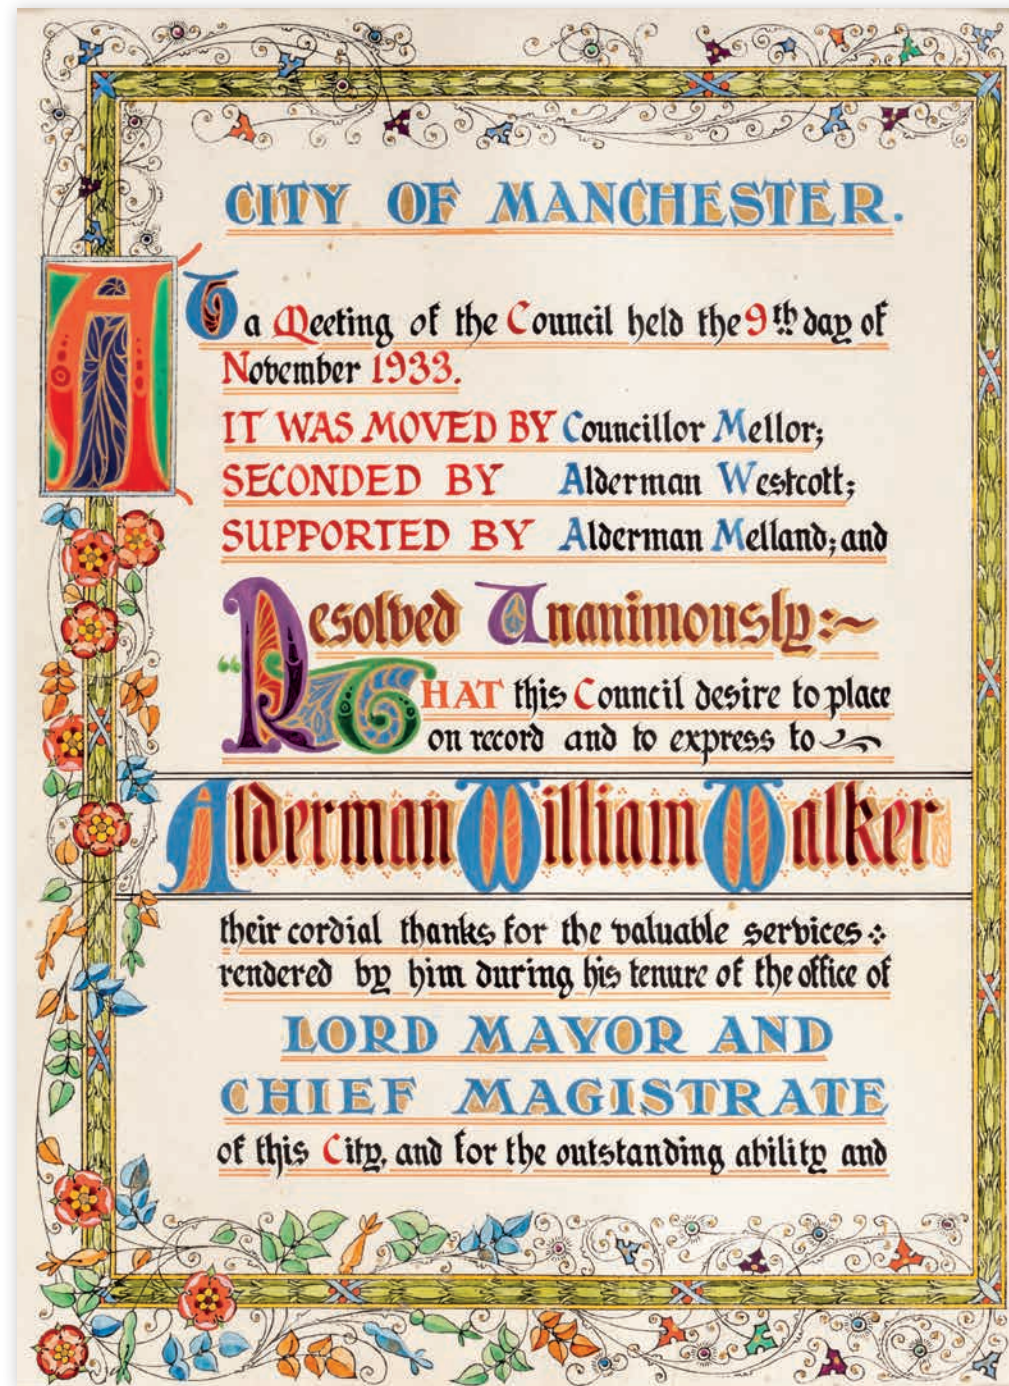 CITY OF MANCHESTER.
AT a Meeting of the Council held the 9th day of
November 1933.
IT WAS MOVED BY Councillor Mellor;
SECONDED BY Alderman Westcott;
SUPPORTED BY Alderman Melland; and
Resolved Unanimously:~
“THAT this Council desire to place
on record and to express to
Alderman William Walker
their cordial thanks for the valuable services
rendered by him during his tenure of the office of
LORD MAYOR AND
CHIEF MAGISTRATE
of this City, and for the outstanding ability and